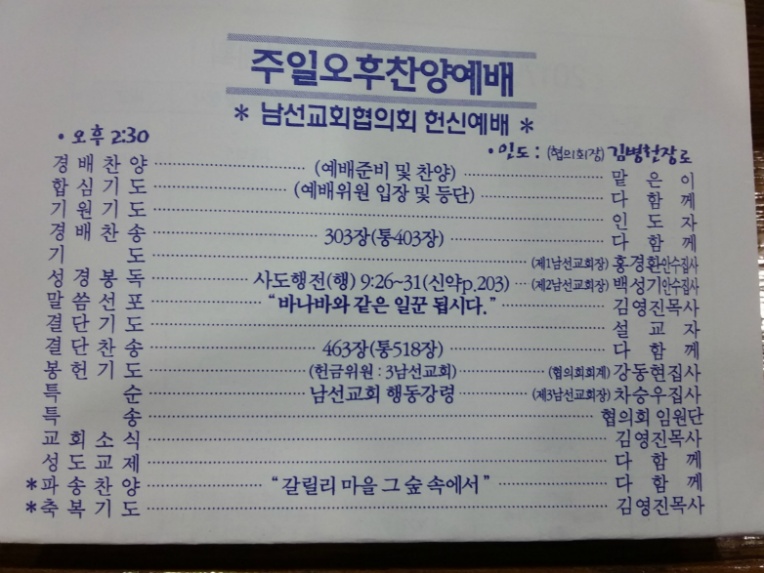 주일오후찬양예배
* 남선교회협의회 헌신예배 *
• 오후 2:30
• 인도 : (협의회장) 김병천장로
경배찬양 (예배준비 및 찬양) 맡은이
합심기도 (예배위원 입장 및 등단) 다함께
기원기도 인도자
경배찬송 303장(통403장) 다함께
기도 (제1남선교회장) 홍경환안수집사
성경봉독 사도행전(행) 9:26~31(신약p.203) (제2남선교회장) 백성기안수집사
말씀선포 “바나바와 같은 일꾼 됩시다.” 김영진목사
결단기도 설교자
결단찬송 463장(통518장) 다함께
봉헌기도 (헌금위원 : 3남선교회) (협의회회계) 강동현집사
특순 남선교회 행동강령 (제3남선교회장) 차승우집사
특송 협의회 임원단
교회소식 김영진목사
성도교제 다함께
*파송찬양 “갈릴리 마을 그 숲 속에서” 다함께
*축복기도 김영진목사